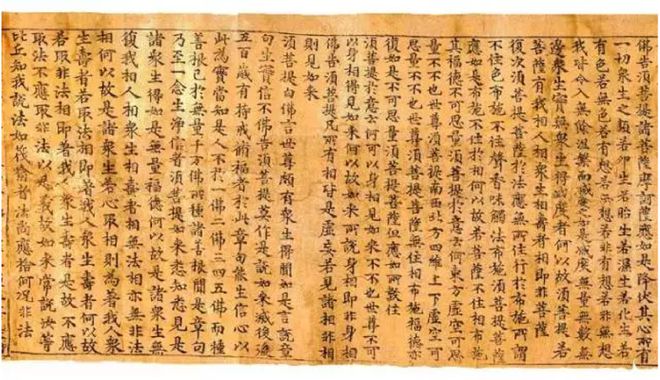 佛告須菩提諸菩薩摩訶薩應如是降伏其心所有
一切眾生之類若卵生若胎生若濕生若化生若
有色若無色若有想若無想若非有想若非無想
我皆令入無餘涅槃而滅度之如是滅度無量無數無
邊眾生實無眾生得滅度者何以故須菩提若
菩薩有我相人相眾生相壽者相即非菩薩
復次須菩提菩薩於法應無所住行於布施所謂
不住色布施不住聲香味觸法布施須菩提菩薩
應如是布施不住於相何以故若菩薩不住相布施
其福德不可思量須菩提於意云何東方虛空可思
量不不也世尊須菩提南西北方四維上下虛空可
思量不不也世尊須菩提菩薩無住相布施福德亦
復如是不可思量須菩提菩薩但應如所教住
須菩提於意云何可以身相見如來不不也世尊不可
以身相得見如來何以故如來所說身相即非身相
佛告須菩提凡所有相皆是虛妄若見諸相非相
則見如來
須菩提白佛言世尊頗有眾生得聞如是言說章
句生實信不佛告須菩提莫作是說如來滅後後
五百歲有持戒脩福者於此章句能生信心以
此為實當知是人不於一佛二佛三四五佛而種
善根已於無量千万佛所種諸善根聞是章句
乃至一念生淨信者須菩提如來悉知悉見是
諸眾生得如是無量福德何以故是諸眾生無
復我相人相眾生相壽者相無法相亦無非法
相何以故是諸眾生若心取相則為著我人眾
生壽者若取法相即著我人眾生壽者何以故
若取非法相即著我人眾生壽者是故不應
取法不應取非法以是義故如來常說汝等
比丘知我說法如筏喻者法尚應捨何況非法